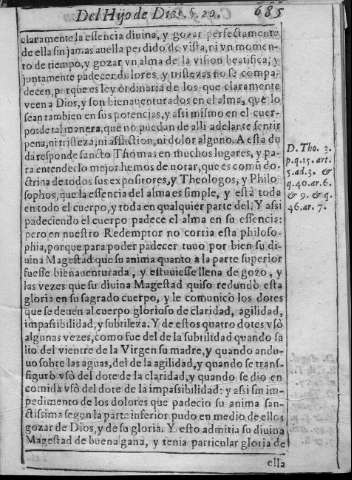 Del Hijo de Dios. §. 29. 685
claramente la essencia diuina, y gozar perfectamente
de ella sin jamas auella perdido de vista, ni vn momen-
to de tiempo, y gozar vn alma de la vision beatifica; y
juntamente padecer dolores, y tristezas no se compa-
decen, porque es ley ordinaria de los que claramente
veen a Dios, y son bienauenturados en el alma, que lo
sean tambien en sus potencias, y assi mismo en el cuer-
po: de tal manera, que no puedan de alli adelante sentir
pena, ni tristeza, ni afliccion, ni dolor alguno. A esta du
da responde sancto Thomas en muchos lugares, y pa-
ra entendello mejor hemos de notar, que es comũ do-
ctrina de todos sus expositores, y Theologos, y Philo-
sophos, que la essencia del alma es simple, y està toda
en todo el cuerpo, y toda en qualquier parte del. Y assi
padeciendo el cuerpo padece el alma en su essencia:
pero en nuestro Redemptor no corria esta philoso-
phia, porque para poder padecer tuuo por bien su di-
uina Magestad que su anima quanto a la parte superior
fuesse bienauenturada, y estuuiesse llena de gozo, y
las vezes que su diuina Magestad quiso redundò esta
gloria en su sagrado cuerpo, y le comunicò los dotes
que se deuen al cuerpo glorioso de claridad, agilidad,
impassibilidad, y subtileza. Y de estos quatro dotes vsò
algunas vezes, como fue del de la subtilidad quando sa
lio del vientre de la Virgen su madre, y quando andu-
uo sobre las aguas, del de la agilidad, y quando se trans-
figurò vsò del dote de la claridad, y quando se dio en
comida vsò del dote de la impassibilidad: y assi sin im-
pedimento de los dolores que padecio su anima san-
ctissima segun la parte inferior pudo en medio de ellos
gozar de Dios, y de su gloria. Y esto admitia su diuina
Magestad de buena gana, y tenia particular gloria de
ella
D. Tho. 3.
p. q. 15. art.
5. ad. 3. &
q. 40. ar. 6.
& 9. & q.
46. ar. 7.